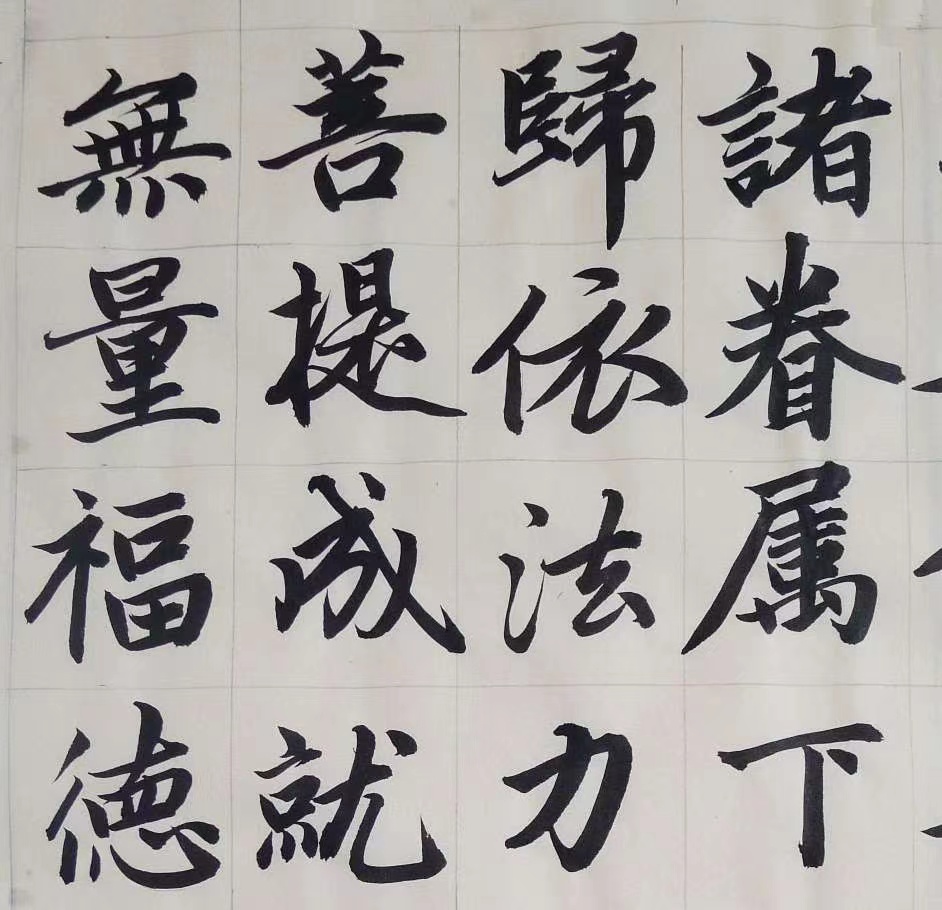 諸眷属下
歸依法力
菩提成就
無量福德